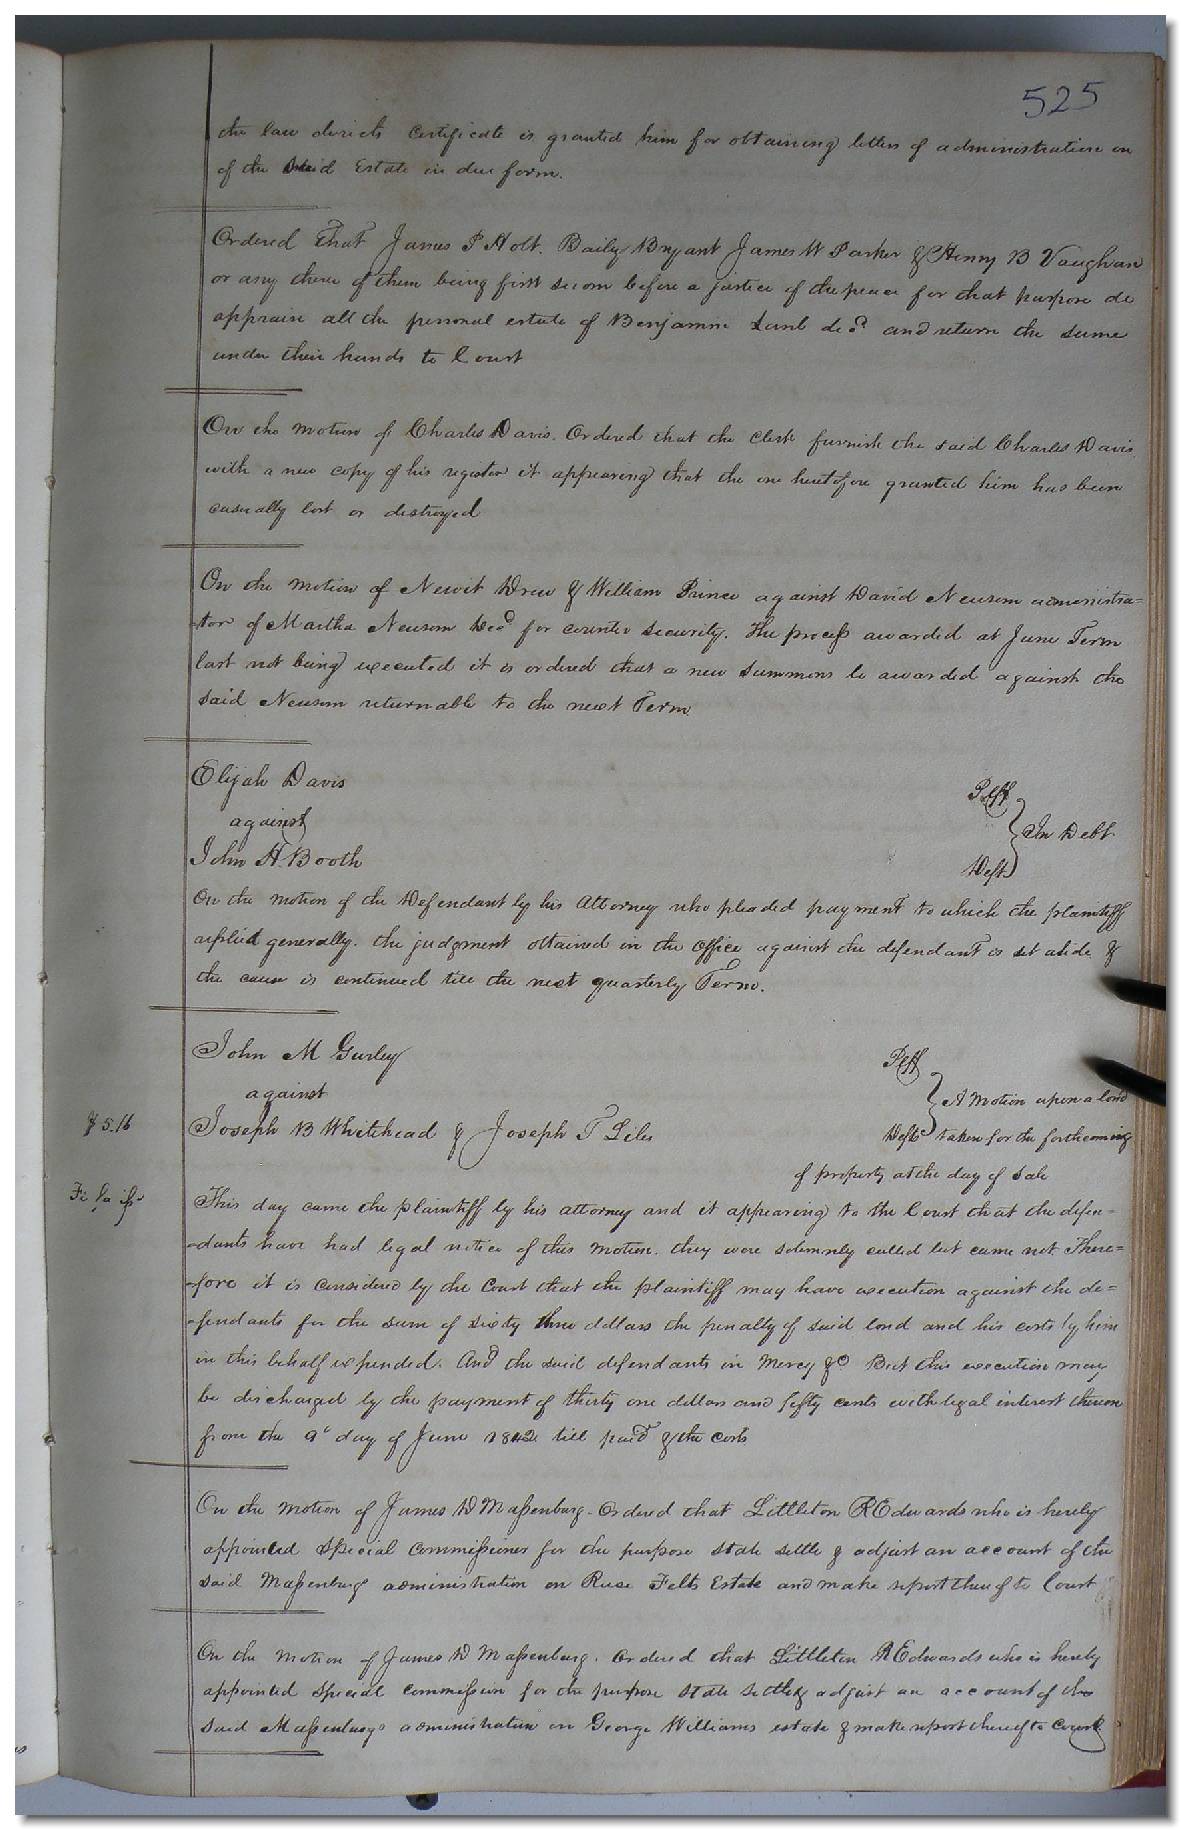 525
the law directs certificate is granted him for obtaining letters of administration on
of the said Estate in due form.
Ordered that James P Holt. Baily Bryant James W Parker & Henry B Vaughan
or any three of them being first sworn before a justice of the peace for that purpose do
appraise all the personal estate of Benjamin Lanb decd. and return the same
under their hands to Court
On the motion of Charles Davis. Ordered that the Clerk furnish the said Charles Davis
with a new copy of his register it appearing that the one heretofore granted him has been
casually lost or destroyed
On the motion of Newit Drew & William Prince against David Newsom administra=
-tor of Martha Newsom Decd for counter security. The process awarded at June Term
last not being executed it is ordered that a new summons be awarded against the
said Newsom returnable to the next Term.
Elijah Davis Plff
against In Debt
John A. Booth Deft
On the motion of the Defendant by his Attorney who pleaded payment to which the plaintiff
replied generally. the judgment obtained in the office against the defendant is set aside &
the cause is continued till the next quarterly Term.
John M Gurley Plff
against A Motion upon a bond
$5.16 Joseph B Whitehead & Joseph T Liles Defts taken for the forthcoming
of property at the day of sale
Fi fa iss
This day came the plaintiff by his attorney and it appearing to the Court that the defen-
-dants have had legal notice of this motion. they were solemnly called but came not There=
-fore it is considered by the Court that the plaintiff may have execution against the de=
-fendants for the sum of sixty three dollars the penalty of said bond and his costs by him
in this behalf expended. And the said defendants in Mercy &c But this execution may
be discharged by the payment of thirty one dollars and fifty cents with legal interest thereon
from the 9th day of June 1842 till paid & the costs
On the motion of James D Massenburg. Ordered that Littleton R Edwards who is hereby
appointed Special Commissioner for the purpose state settle & adjust an account of the
said Massenburg administration on Ruse Felts Estate and make report thereof to Court
On the motion of James D Massenburg. Ordered that Littleton R Edwards who is hereby
appointed Special Commission for the purpose state settle & adjust an account of the
said Massenburgs administration on George Williams estate & make report thereof to Court